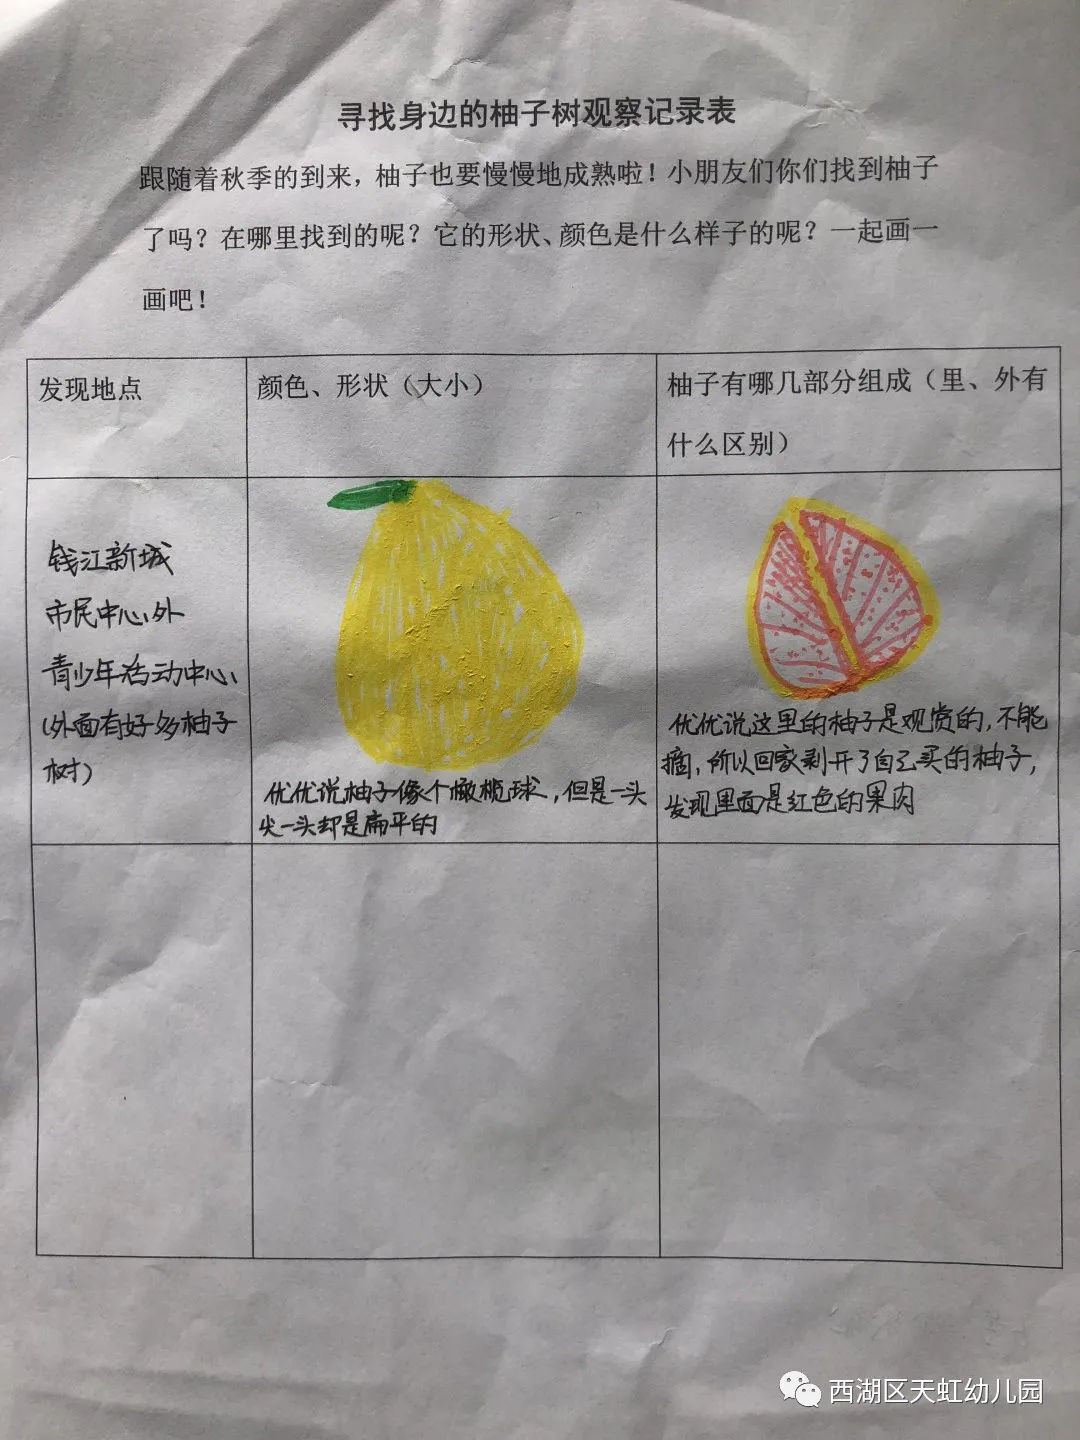 寻找身边的柚子树观察记录表
跟随着秋季的到来，柚子也要慢慢地成熟啦！小朋友们你们找到柚子
了吗？在哪里找到的呢？它的形状、颜色是什么样子的呢？一起画一
画吧！
发现地点
颜色、形状（大小）
柚子有哪几部分组成（里、外有
什么区别）
钱江新城
市民中心外
青少年活动中心
（外面有好多柚子
树）
优优说柚子像个橄榄球，但是一头
尖一头却是扁平的
优优说这里的柚子是观赏的，不能
摘，所以回家剥开了自己买的柚子，
发现里面是红色的果肉
西湖区天虹幼儿园